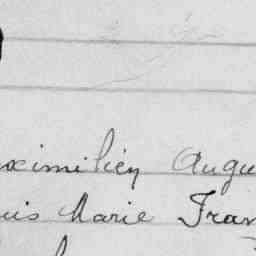 ximilien Augu
uis Marie Fran